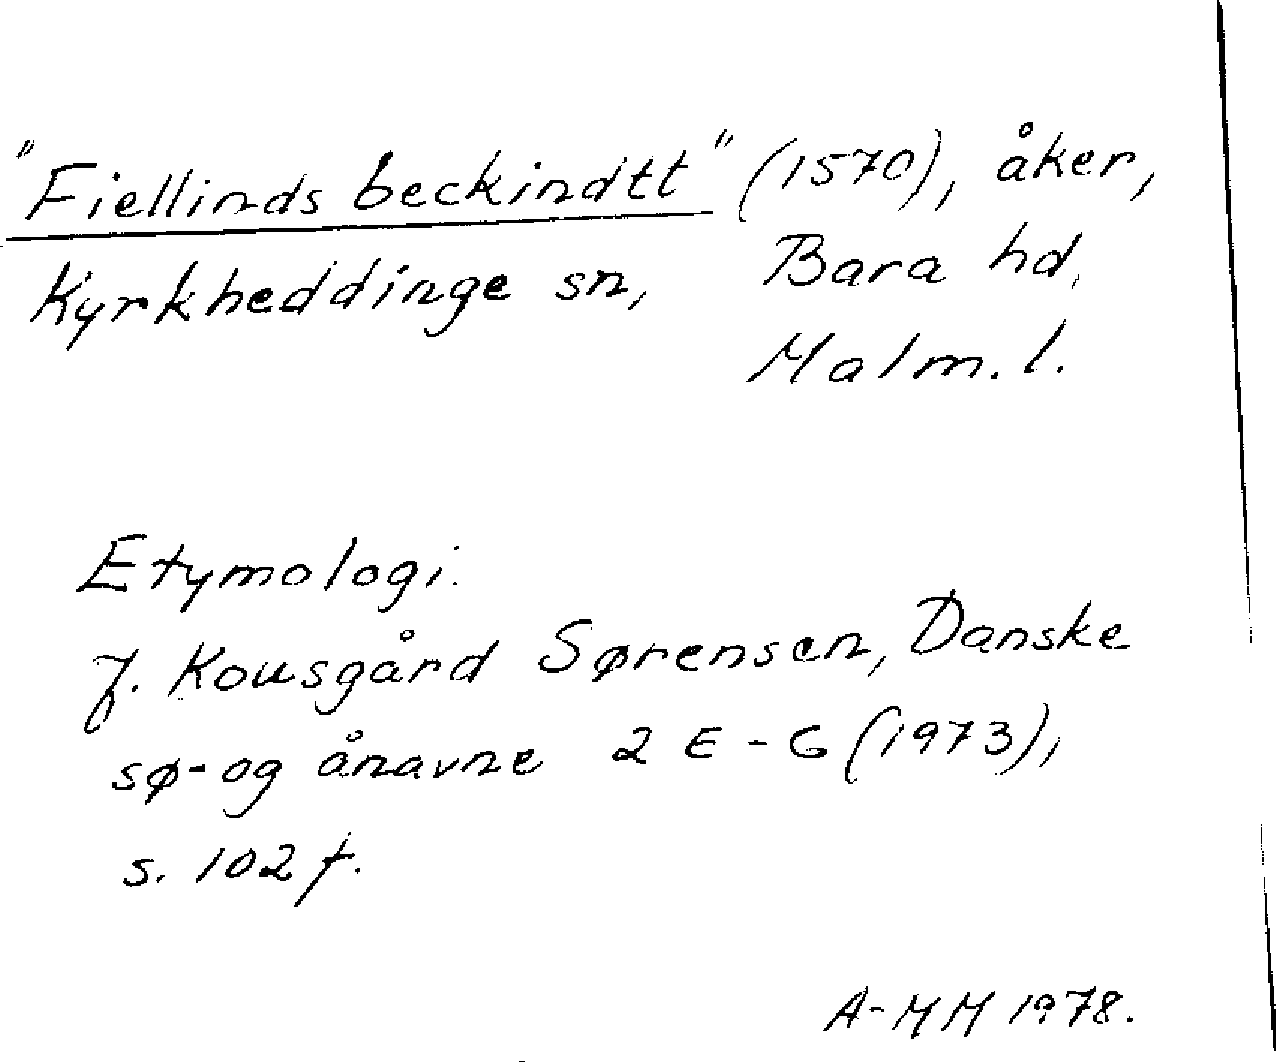 "Fiellinds beckindtt" (1570), åker,
Kyrkheddinge sn, Bara hd,
Malm. l.
Etymologi.
J. Kousgård Sørensen, Danske
sø- og ånavne 2 E-G (1973),
s. 102 f.
A-MM 1978.